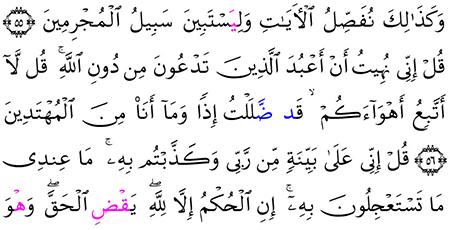 وَكَذَٰلِكَ نُفَصِّلُ الْأَيَٰتِ وَلِيَسْتَبِينَ سَبِيلُ الْمُجْرِمِينَ ﴿٥٥﴾
قُلْ إِنِّي نُهِيتُ أَنْ أَعْبُدَ الَّذِينَ تَدْعُونَ مِن دُونِ اللَّهِ ۚ قُل لَّآ
أَتَّبِعُ أَهْوَآءَكُمْ ۙ قَد ضَّلَلْتُ إِذًا وَمَآ أَنَا۠ مِنَ الْمُهْتَدِينَ
﴿٥٦﴾ قُلْ إِنِّي عَلَىٰ بَيِّنَةٍ مِّن رَّبِّي وَكَذَّبْتُم بِهِۦ ۚ مَا عِندِى
مَا تَسْتَعْجِلُونَ بِهِۦٓ ۚ إِنِ الْحُكْمُ إِلَّا لِلَّهِ ۖ يَقْضِ الْحَقَّ ۖ وَهْوَ